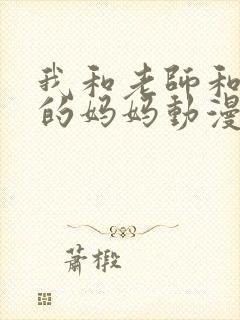 我和老師和
的妈妈動漫
蕭椴